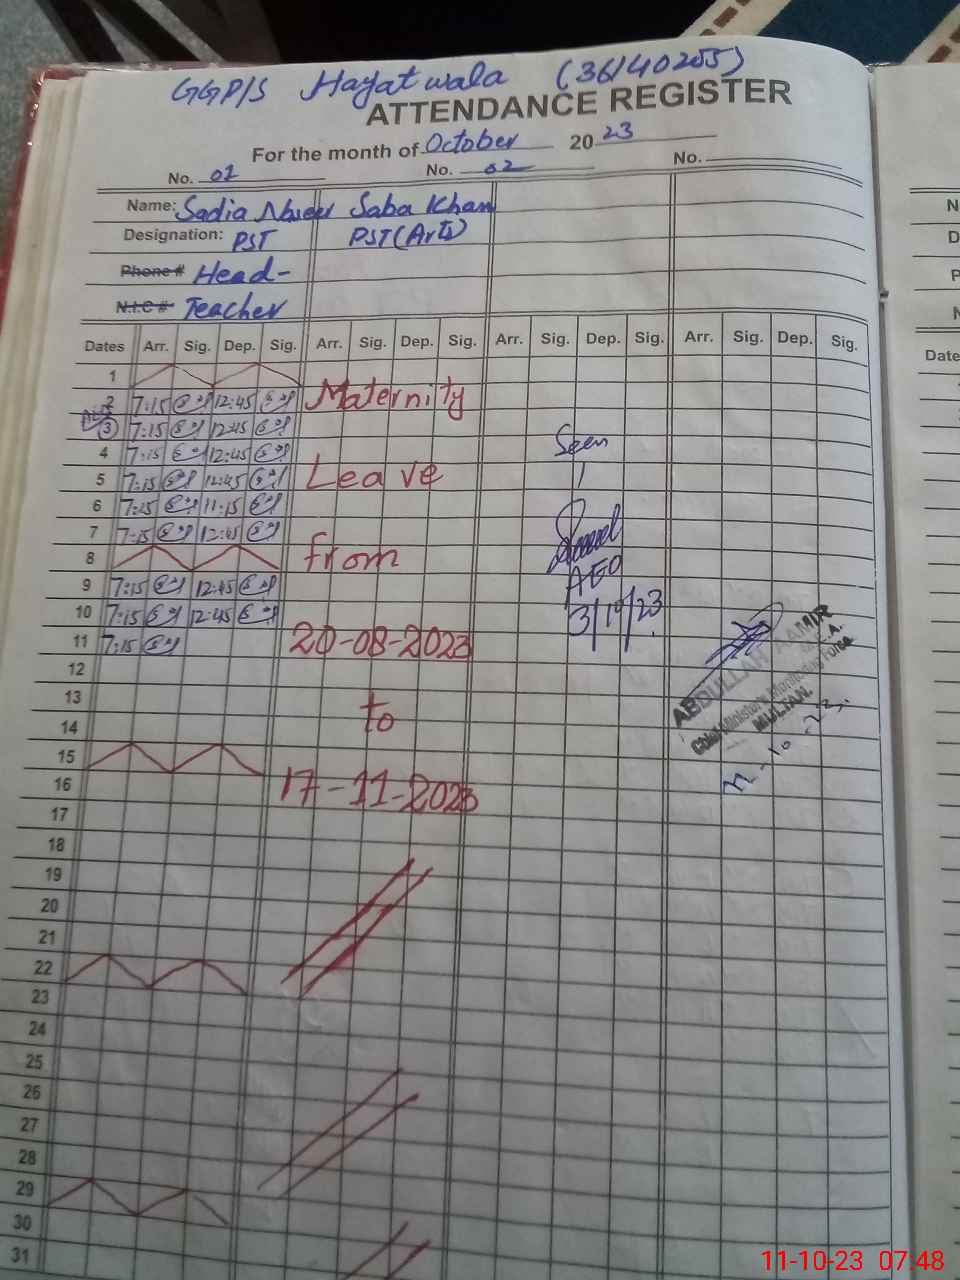 GGP/S Hayat wala (36140255)
ATTENDANCE REGISTER
For the month of October 2023
No. 01 No. 02 No.
Name: Sadia Naseer Saba Khan
Designation: PST PST (Arts)
Phone # Head-
N.I.C # Teacher
Dates Arr. Sig. Dep. Sig. Arr. Sig. Dep. Sig. Arr. Sig. Dep. Sig. Arr. Sig. Dep. Sig.
1
2 7:15 12:45 Maternity
3 7:15 12:45
4 7:15 12:45 Seen
5 7:15 12:45 Leave
6 7:15 11:15
7 7:15 12:45
8 from AEO
9 7:15 12:45
10 7:15 12:45 3/10/23
11 7:15 20-08-2023
ABDULLAH AAMIR
M.E.A.
Chief Minister's Monitoring Force
MULTAN.
12
13
14 to
15
16 17-11-2023
17
18
19
20
21
22
23
24
25
26
27
28
29
30
31
N
D
P
N
Date
11-10-23 07:48